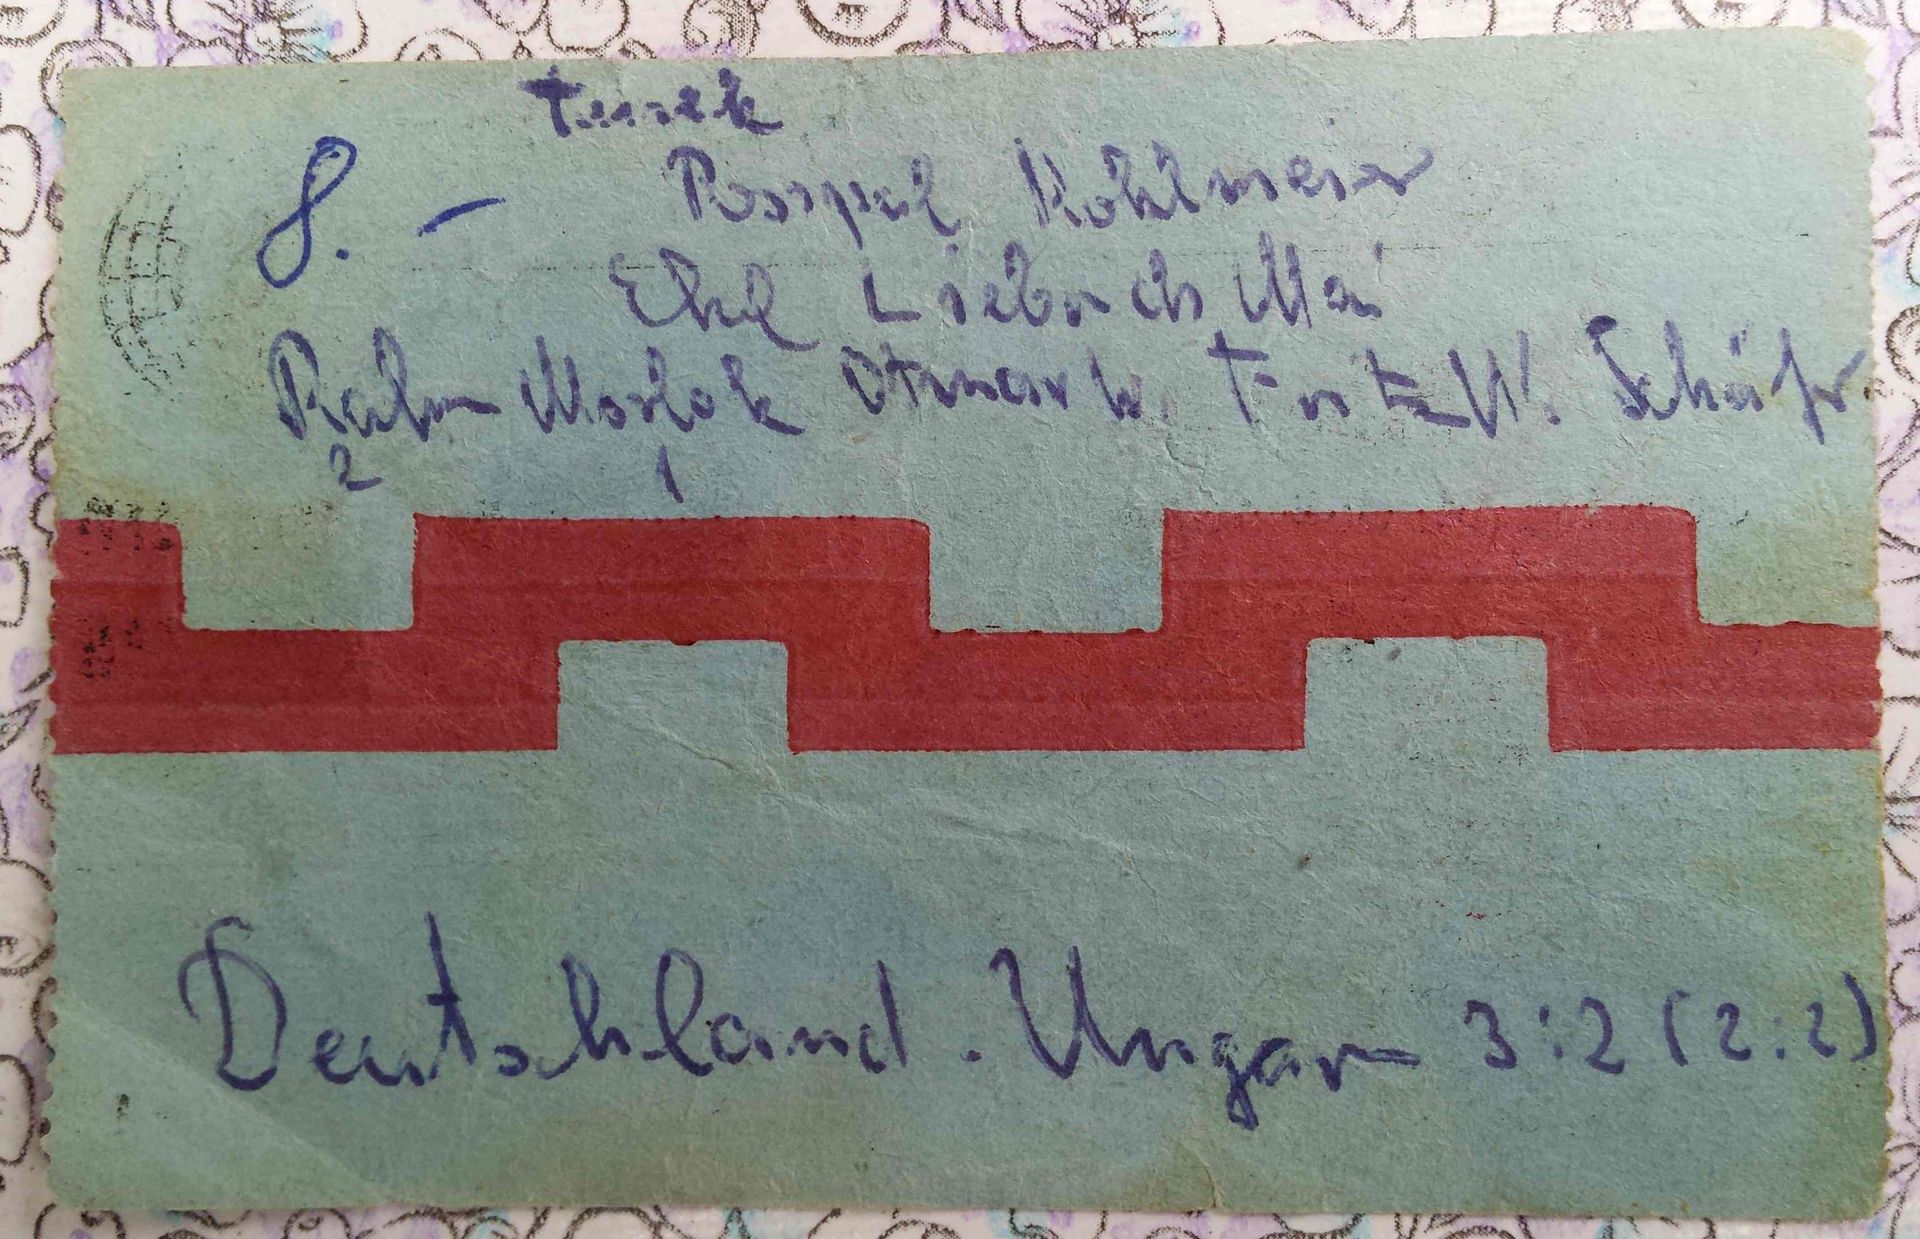 Turek
8. - Posipal Kohlmeier
Ekel Liebrich Mai
Rahn Morlok Otmar W. Fritz W. Schäfr.
2 1
Deutschland - Ungarn 3:2 (2:2)